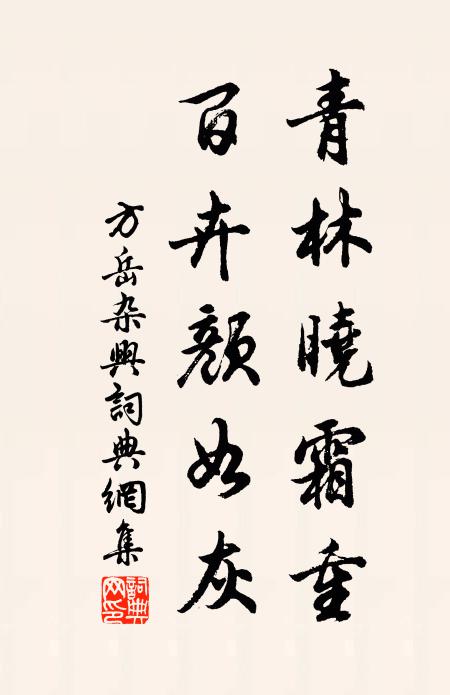 青林曉霜重
百卉顏如灰
方岳杂興詞典網集
詞典網印